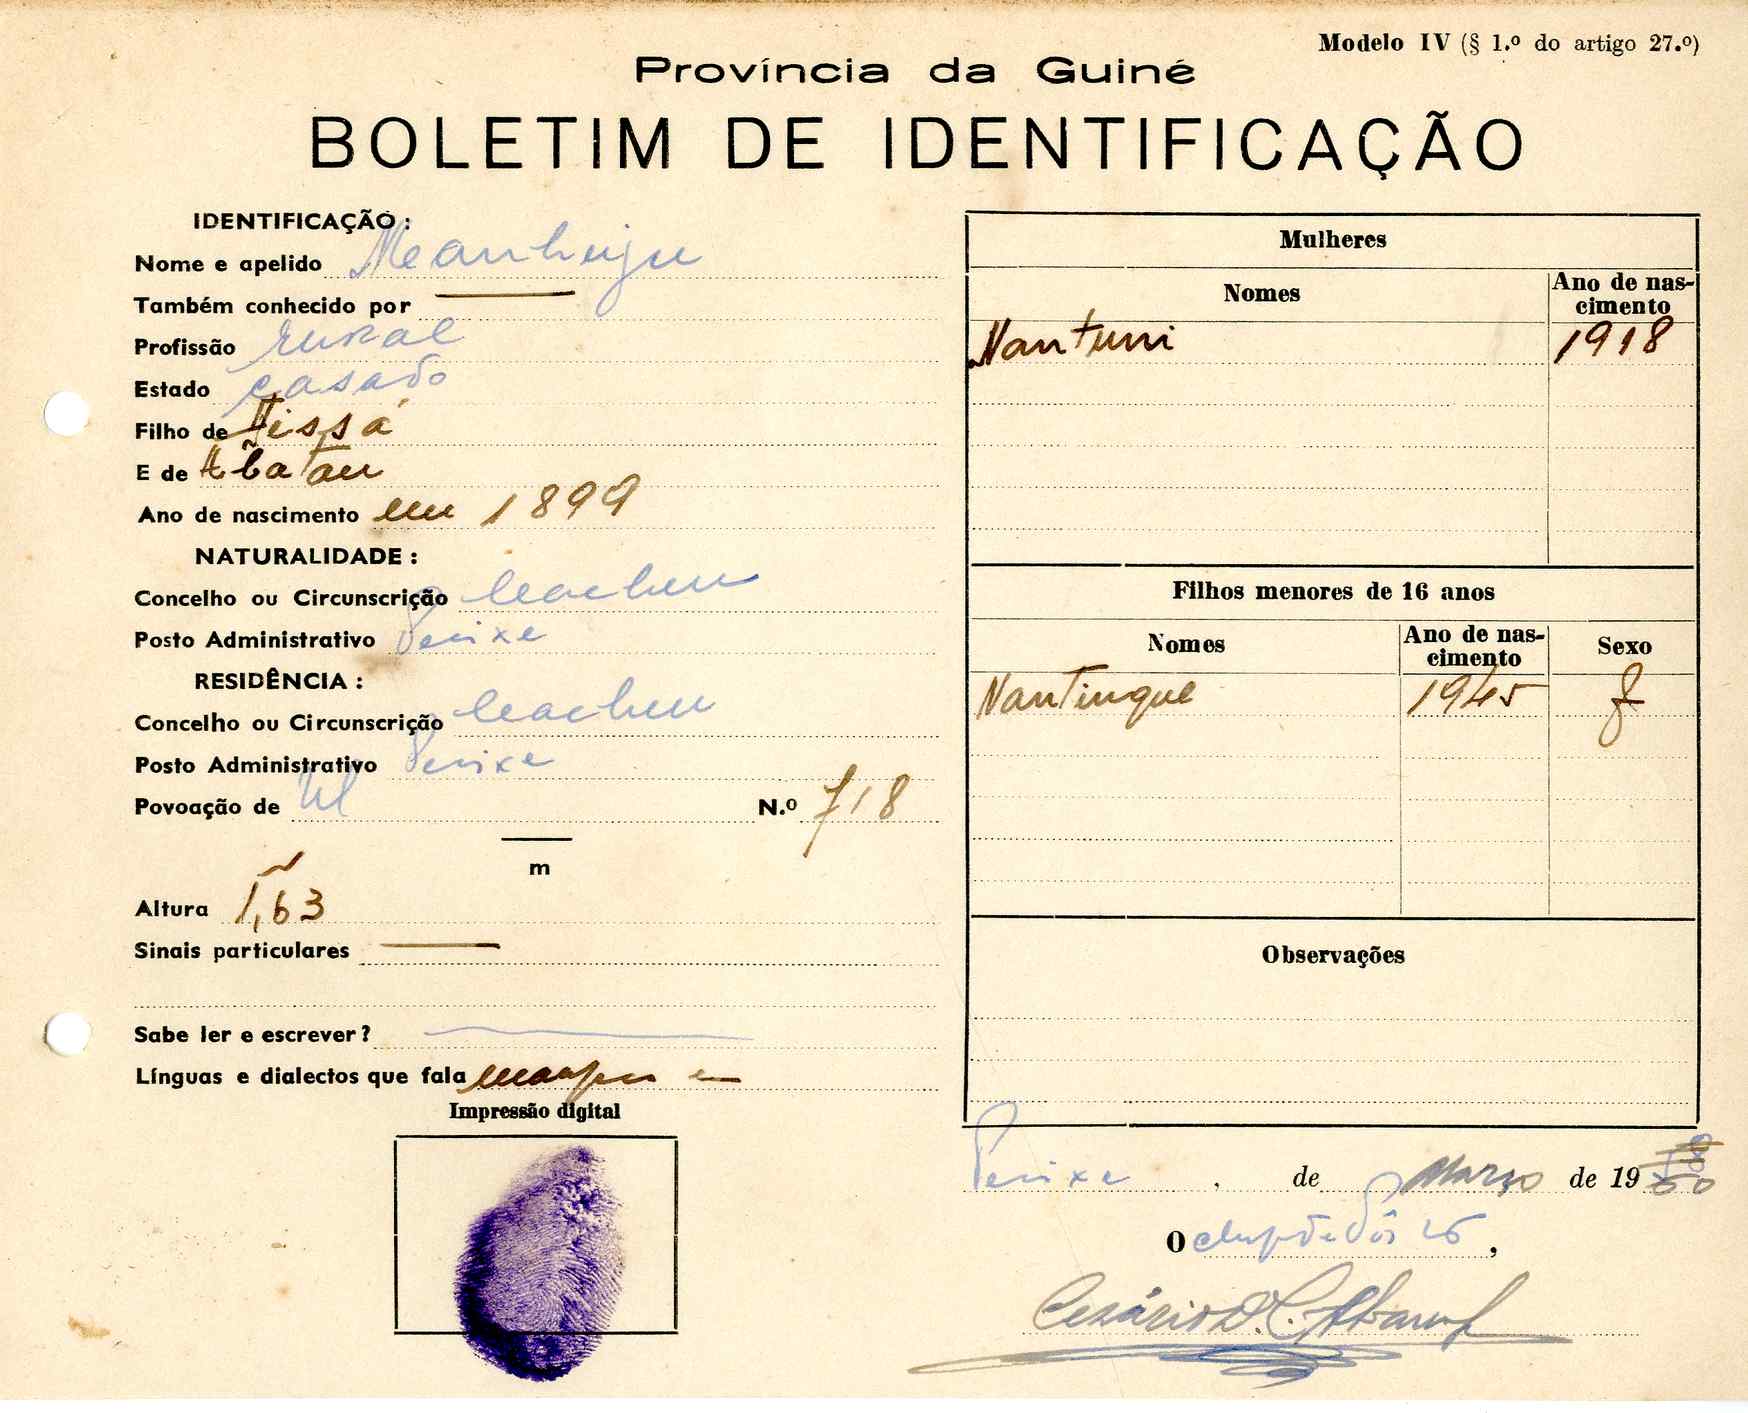 Modelo IV (§ 1.º do artigo 27.º)
Província da Guiné
BOLETIM DE IDENTIFICAÇÃO
IDENTIFICAÇÃO:
Nome e apelido
Também conhecido por
Profissão rural
Estado casado
Filho de
E de
Ano de nascimento em 1899
NATURALIDADE:
Concelho ou Circunscrição Cacheu
Posto Administrativo Pecixe
RESIDÊNCIA:
Concelho ou Circunscrição Cacheu
Posto Administrativo Pecixe
Povoação de N.º 718
m
Altura 1,63
Sinais particulares
Sabe ler e escrever?
Línguas e dialectos que fala
Impressão digital
Mulheres
Nomes Ano de nascimento
Nantuni 1918
Filhos menores de 16 anos
Nomes Ano de nascimento Sexo
Nantingue 1945 f
Observações
Pecixe, de Março de 19
O
Cesário D. C.